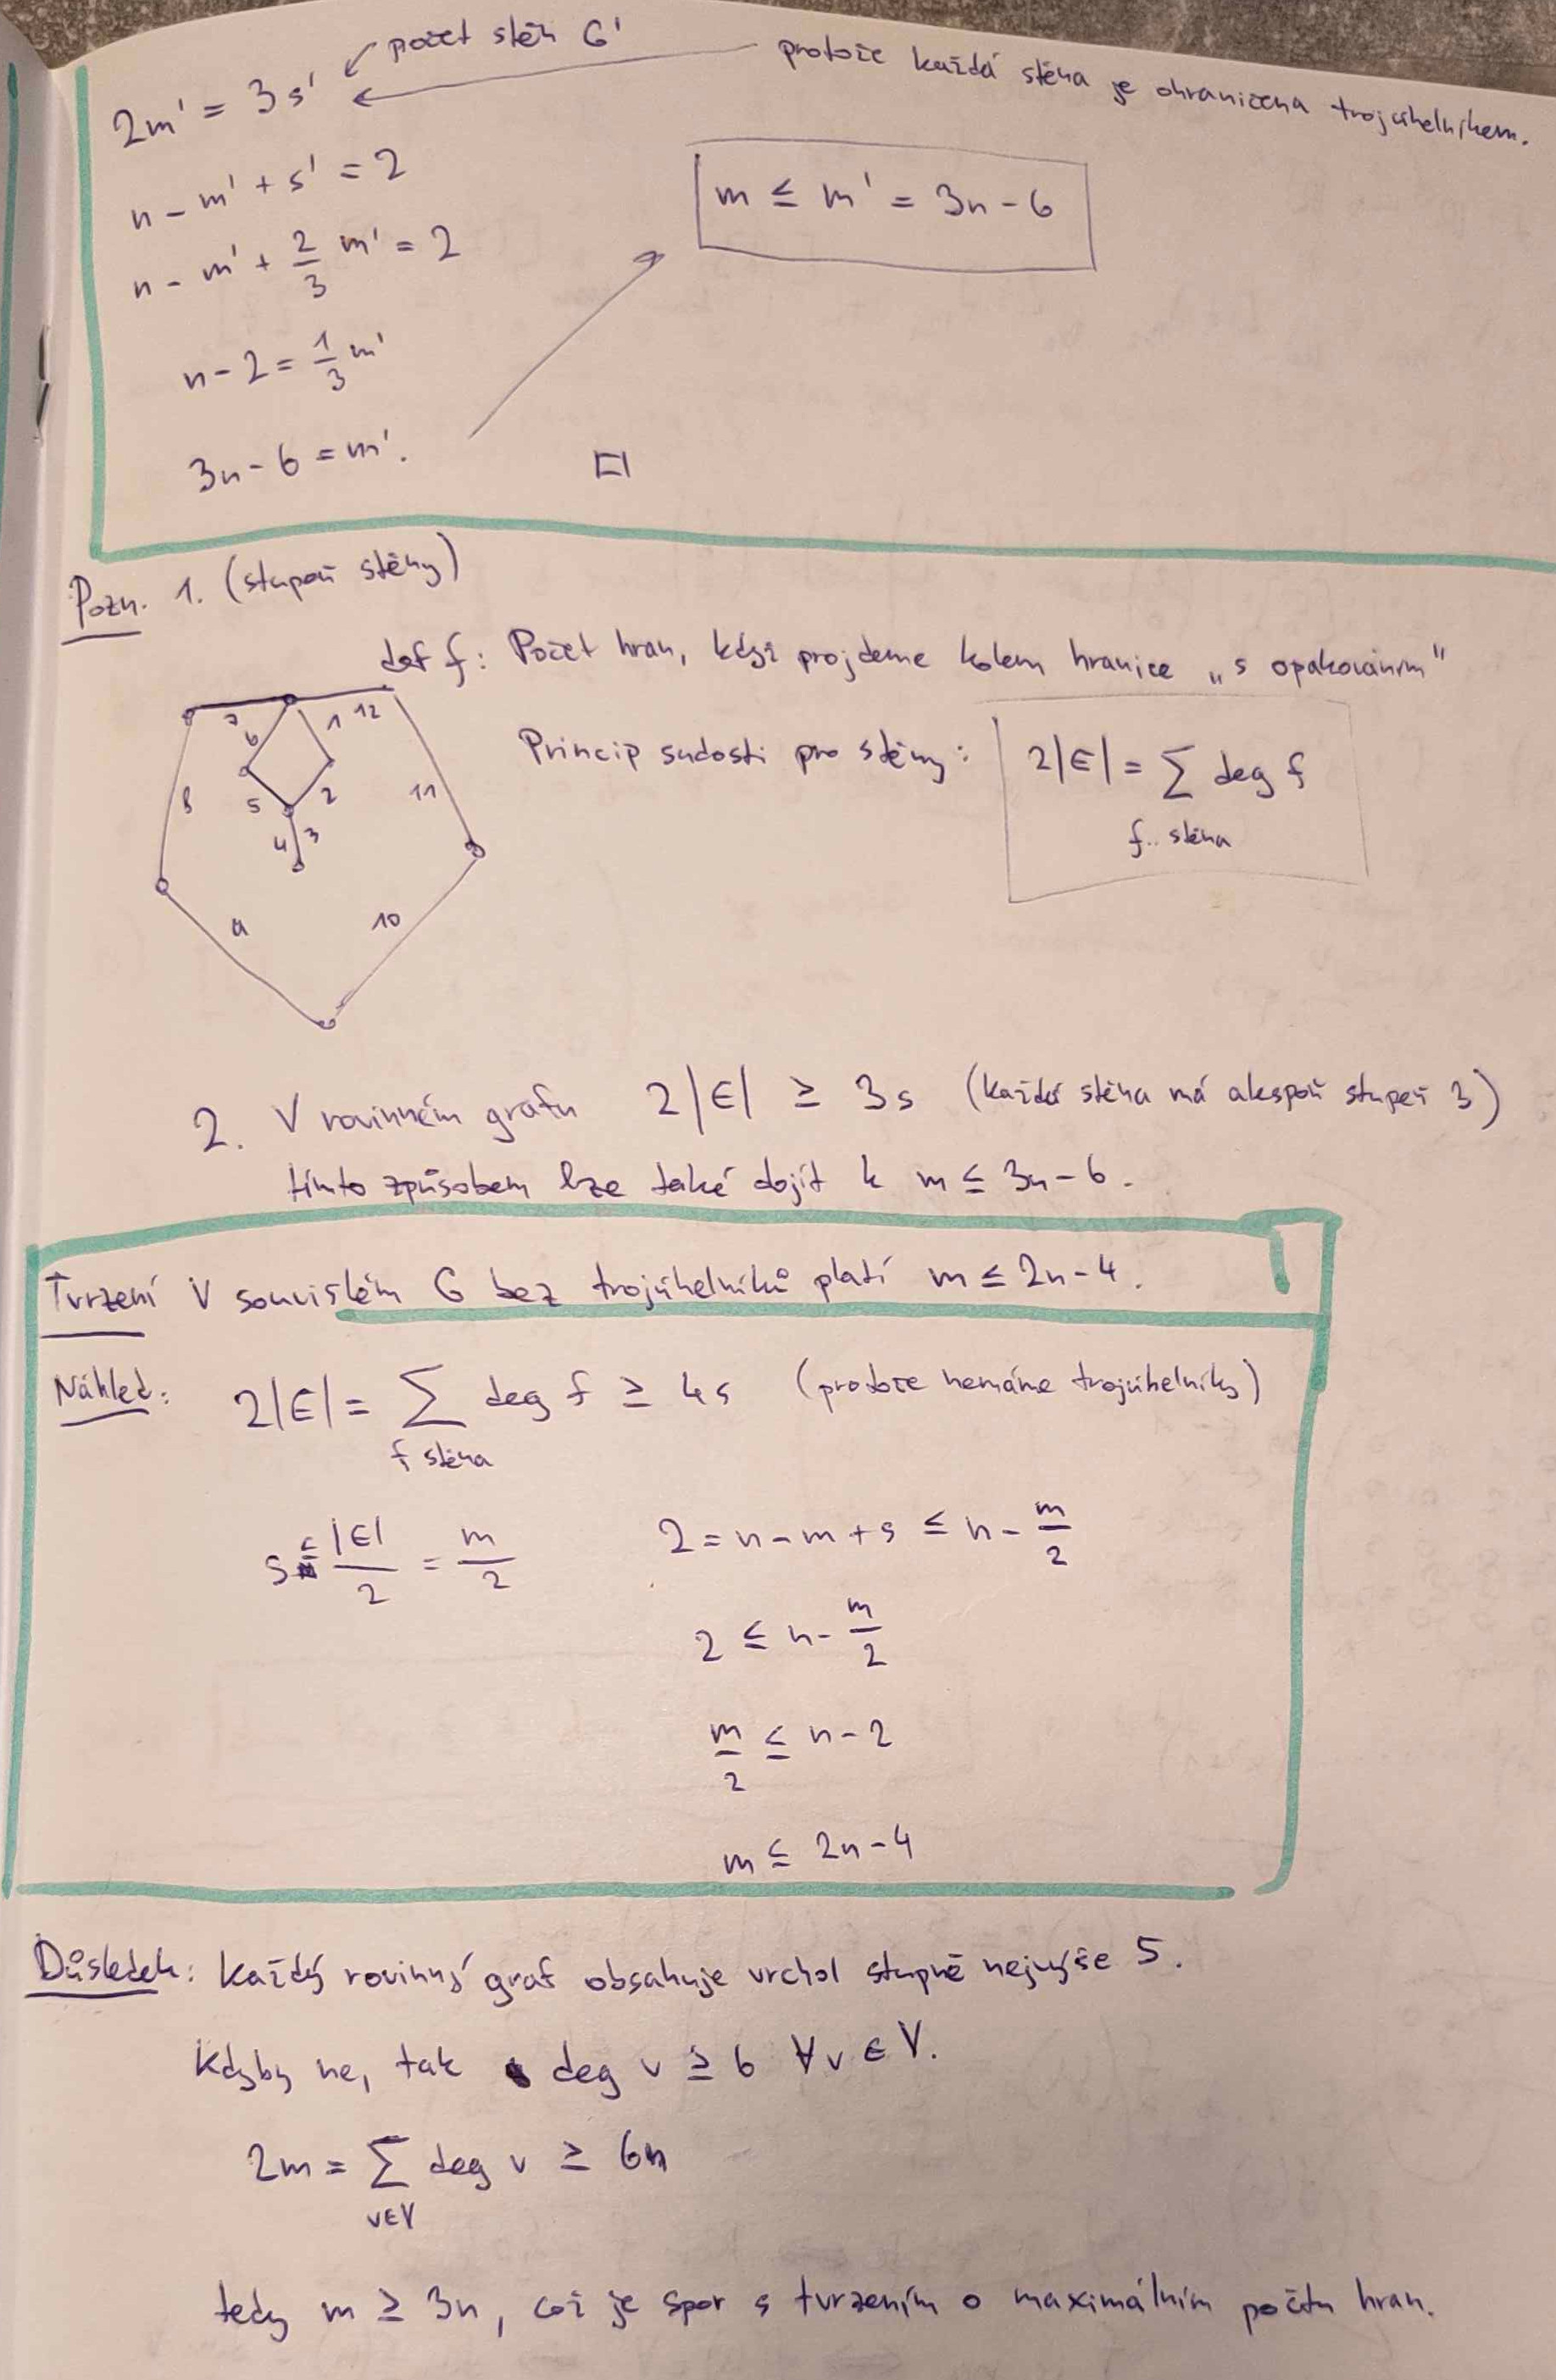 2m' = 3s' ↙ počet stěn G' ← protože každá stěna je ohraničena trojúhelníkem.
n - m' + s' = 2
m ≤ m' = 3n - 6
n - m' + 2/3 m' = 2
n - 2 = 1/3 m'
3n - 6 = m'.
□
Pozn. 1. (stupeň stěny)
def f: Počet hran, když projdeme kolem hranice „s opakováním"
7 6 1 12
8 5 2 11
4 3
9 10
Princip sudosti pro stěny: 2|E| = ∑ deg f
f.. stěna
2. V rovinném grafu 2|E| ≥ 3s (každá stěna má alespoň stupeň 3)
tímto způsobem lze také dojít k m ≤ 3n - 6.
Tvrzení V souvislém G bez trojúhelníků platí m ≤ 2n - 4.
Náhled: 2|E| = ∑ deg f ≥ 4s (protože nemáme trojúhelníky)
f stěna
s ≤ |E|/2 = m/2
2 = n - m + s ≤ n - m/2
2 ≤ n - m/2
m/2 ≤ n - 2
m ≤ 2n - 4
Důsledek: Každý rovinný graf obsahuje vrchol stupně nejvýše 5.
Kdyby ne, tak deg v ≥ 6 ∀v ∈ V.
2m = ∑ deg v ≥ 6n
v∈V
tedy m ≥ 3n, což je spor s tvrzením o maximálním počtu hran.